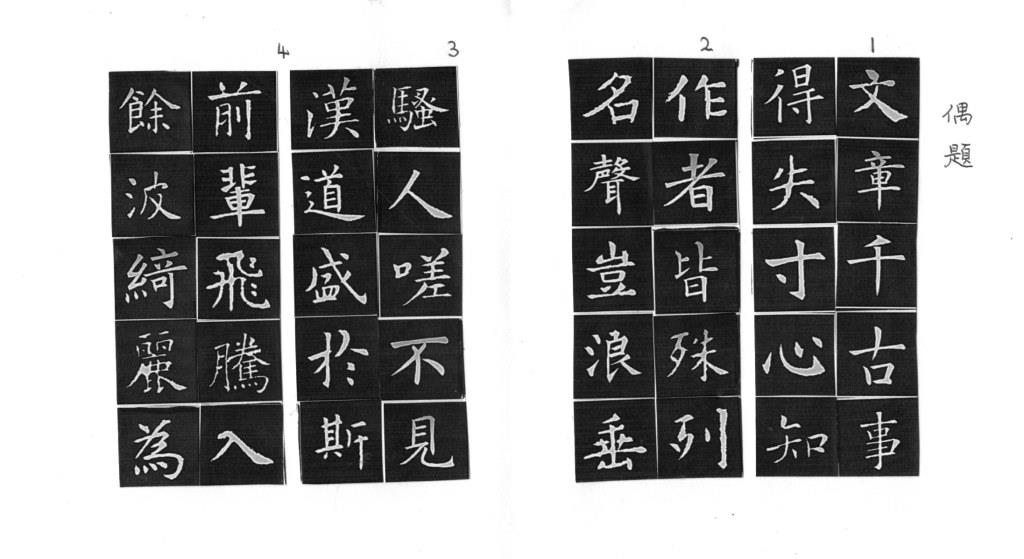 偶題
1
文章千古事
得失寸心知
2
作者皆殊列
名聲豈浪垂
3
騷人嗟不見
漢道盛於斯
4
前輩飛騰入
餘波綺麗為